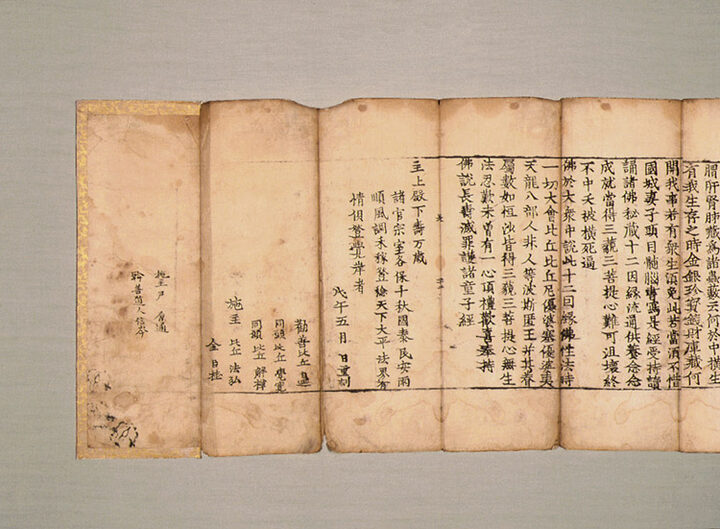 謂肝腎肺臟爲諸蟲食云何於中橫生
有我生存之時金銀珍寶錢財庫藏何
關我事若有衆生須免此苦當須不惜
國城妻子頭目髓腦專寫是經受持讀
誦諸佛秘藏十二因緣流通供養念念
成就當得三藐三菩提心難可沮壞終
不中夭被橫死逼
佛於大衆中說此十二因緣佛性法時
一切大會比丘比丘尼優婆塞優婆夷
天龍八部人非人等波斯匿王幷其眷
屬數如恒沙皆得三藐三菩提心無生
法忍歎未曾有一心頂禮歡喜奉持
佛說長壽滅罪護諸童子經
主上殿下壽万歲
諸官宗室各保千秋國泰民安雨
順風調禾稼登稔天下大平法界有
情俱登覺岸者
戊午五月 日重刻
勸善比丘
同願比丘 覺寬
同願比丘 解禪
施主 比丘 法弘
施主